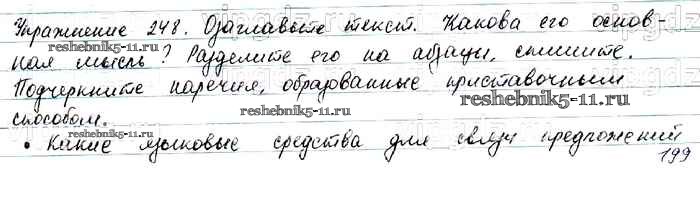 Упражнение 248. Озаглавьте текст. Какова его основ-
ная мысль? Разделите его на абзацы, спишите.
Подчеркните наречия, образованные приставочным
способом.
• Какие языковые средства для связи предложений
199
reshebnik5-11.ru
reshebnik5-11.ru
reshebnik5-11.ru
reshebnik5-11.ru